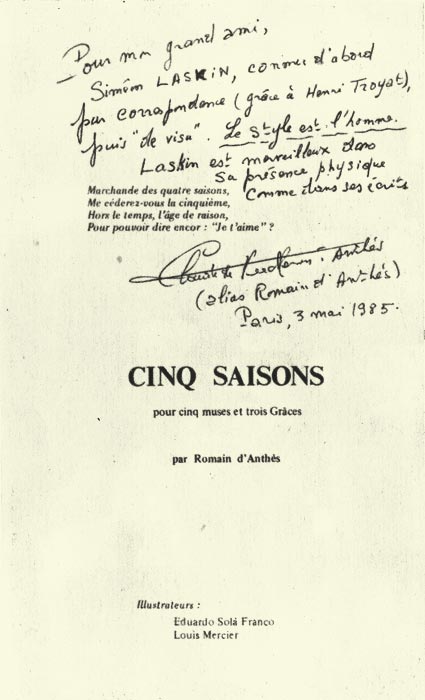 Pour mon grand ami,
Siméon LASKIN, connu d'abord
par correspondance (grâce à Henri Troyat),
puis "de visu". Le style est l'homme.
Laskin est merveilleux dans
sa présence physique
comme dans ses écrits
Marchande des quatre saisons,
Me céderez-vous la cinquième,
Hors le temps, l'âge de raison,
Pour pouvoir dire encor : "Je t'aime" ?
Anthés
(alias Romain d'Anthés)
Paris, 3 mai 1985.
CINQ SAISONS
pour cinq muses et trois Grâces
par Romain d'Anthès
Illustrateurs :
Eduardo Solá Franco
Louis Mercier